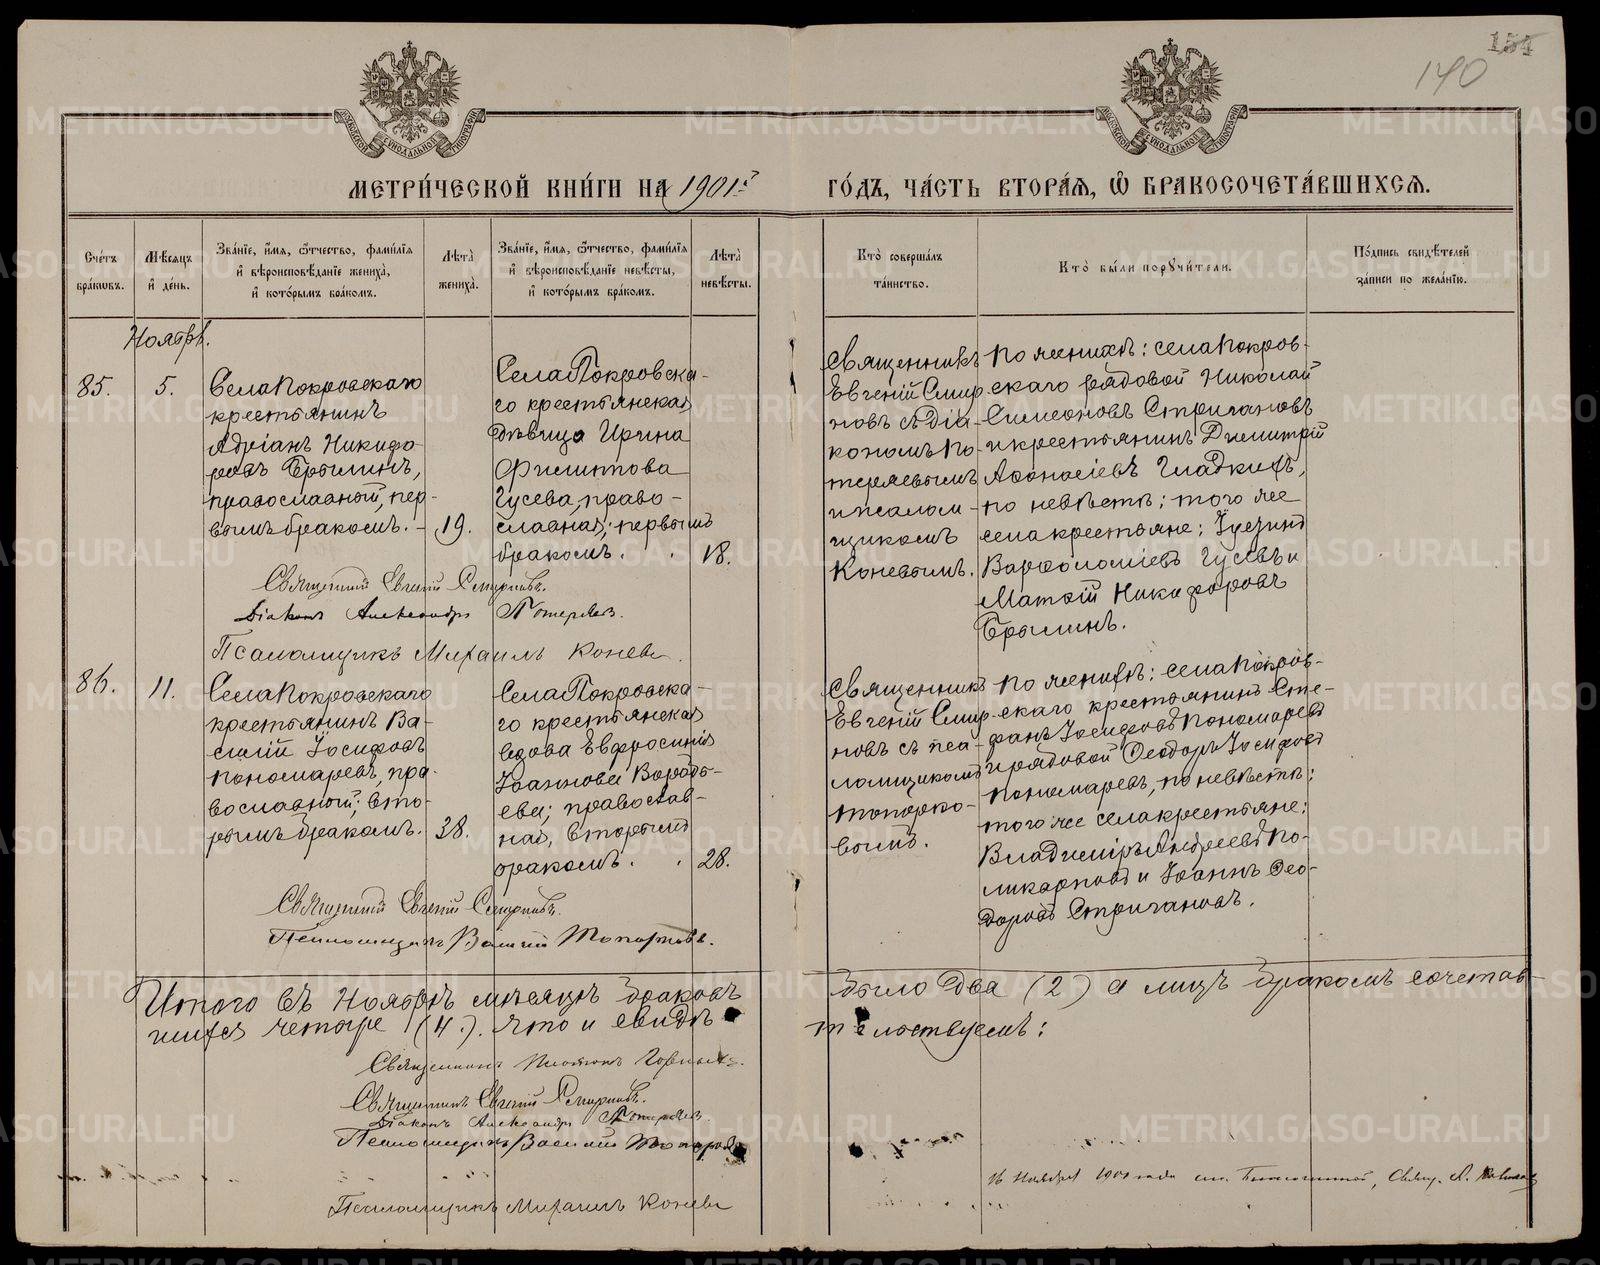 154
140
МЕТРИЧЕСКОЙ КНИГИ НА 1901й
ГОДЪ, ЧАСТЬ ВТОРАЯ, Ѡ БРАКОСОЧЕТАВШИХСЯ.
Счетъ браковъ.
Мѣсяцъ и день.
Званіе, имя, отчество, фамилія
и вѣроисповѣданіе жениха,
и которымъ бракомъ.
Лѣта жениха.
Званіе, имя, отчество, фамилія
и вѣроисповѣданіе невѣсты,
и которымъ бракомъ.
Лѣта невѣсты.
Кто совершалъ
таинство.
Кто были поручители.
Подпись свидѣтелей
записи по желанію.
Ноябрь.
85.
5.
Села Покровскаго
крестьянинъ
Адріанъ Никифо-
ровъ Брылинъ,
православный, пер-
вымъ бракомъ. -
19.
Села Покровска-
го крестьянская
дѣвица Ирина
Филиппова
Гусева, право-
славная; первымъ
бракомъ. .
18.
Священникъ
Евгеній Смир-
новъ съ діа-
кономъ По-
теряевымъ
и псалом-
щикомъ
Коневымъ.
По женихѣ: села Покров-
скаго рядовой Николай
Симеоновъ Стригановъ
и крестьянинъ Димитрій
Аѳонасіевъ Гладкихъ,
по невѣстѣ: того же
села крестьяне:
Варѳоломіевъ Гусевъ и
Матѳій Никифоровъ
Брылинъ.
Священникъ Евгеній Смирновъ.
Діаконъ Александръ Потеряев
Псаломщикъ Михаилъ Коневъ.
86.
11.
Села Покровскаго
крестьянинъ Ва-
силій Іосифовъ
Пономаревъ, пра-
вославный; вто-
рымъ бракомъ.
38.
Села Покровска-
го крестьянская
вдова Евфросинія
Іоаннова Воробь-
ева; православ-
ная, вторымъ
бракомъ. .
28.
Священникъ
Евгеній Смир-
новъ съ пса-
ломщикомъ
Топорко-
вымъ.
По женихѣ: села Покров-
скаго крестьянинъ Сте-
фанъ Іосифовъ Пономаревъ
и рядовой Ѳеодоръ Іосифовъ
Пономаревъ, по невѣстѣ:
того же села крестьяне:
Владиміръ Андреевъ По-
ликарповъ и Іоаннъ Ѳео-
доровъ Стригановъ.
Священникъ Евгеній Смирновъ.
Псаломщикъ Василій Топорковъ.
Итого въ Ноябрѣ мѣсяцѣ браковъ
было два (2) а лицъ бракомъ сочетав-
шихся четыре (4.). Что и свидѣ-
тельствуемъ:
Священникъ Платонъ
Священникъ Евгеній Смирновъ.
Діаконъ Александръ Потеряев
Псаломщикъ Василій Топорков
Псаломщикъ Михаилъ Коневъ
16 Ноября 1901 года
METRIKI.GASO-URAL.RU